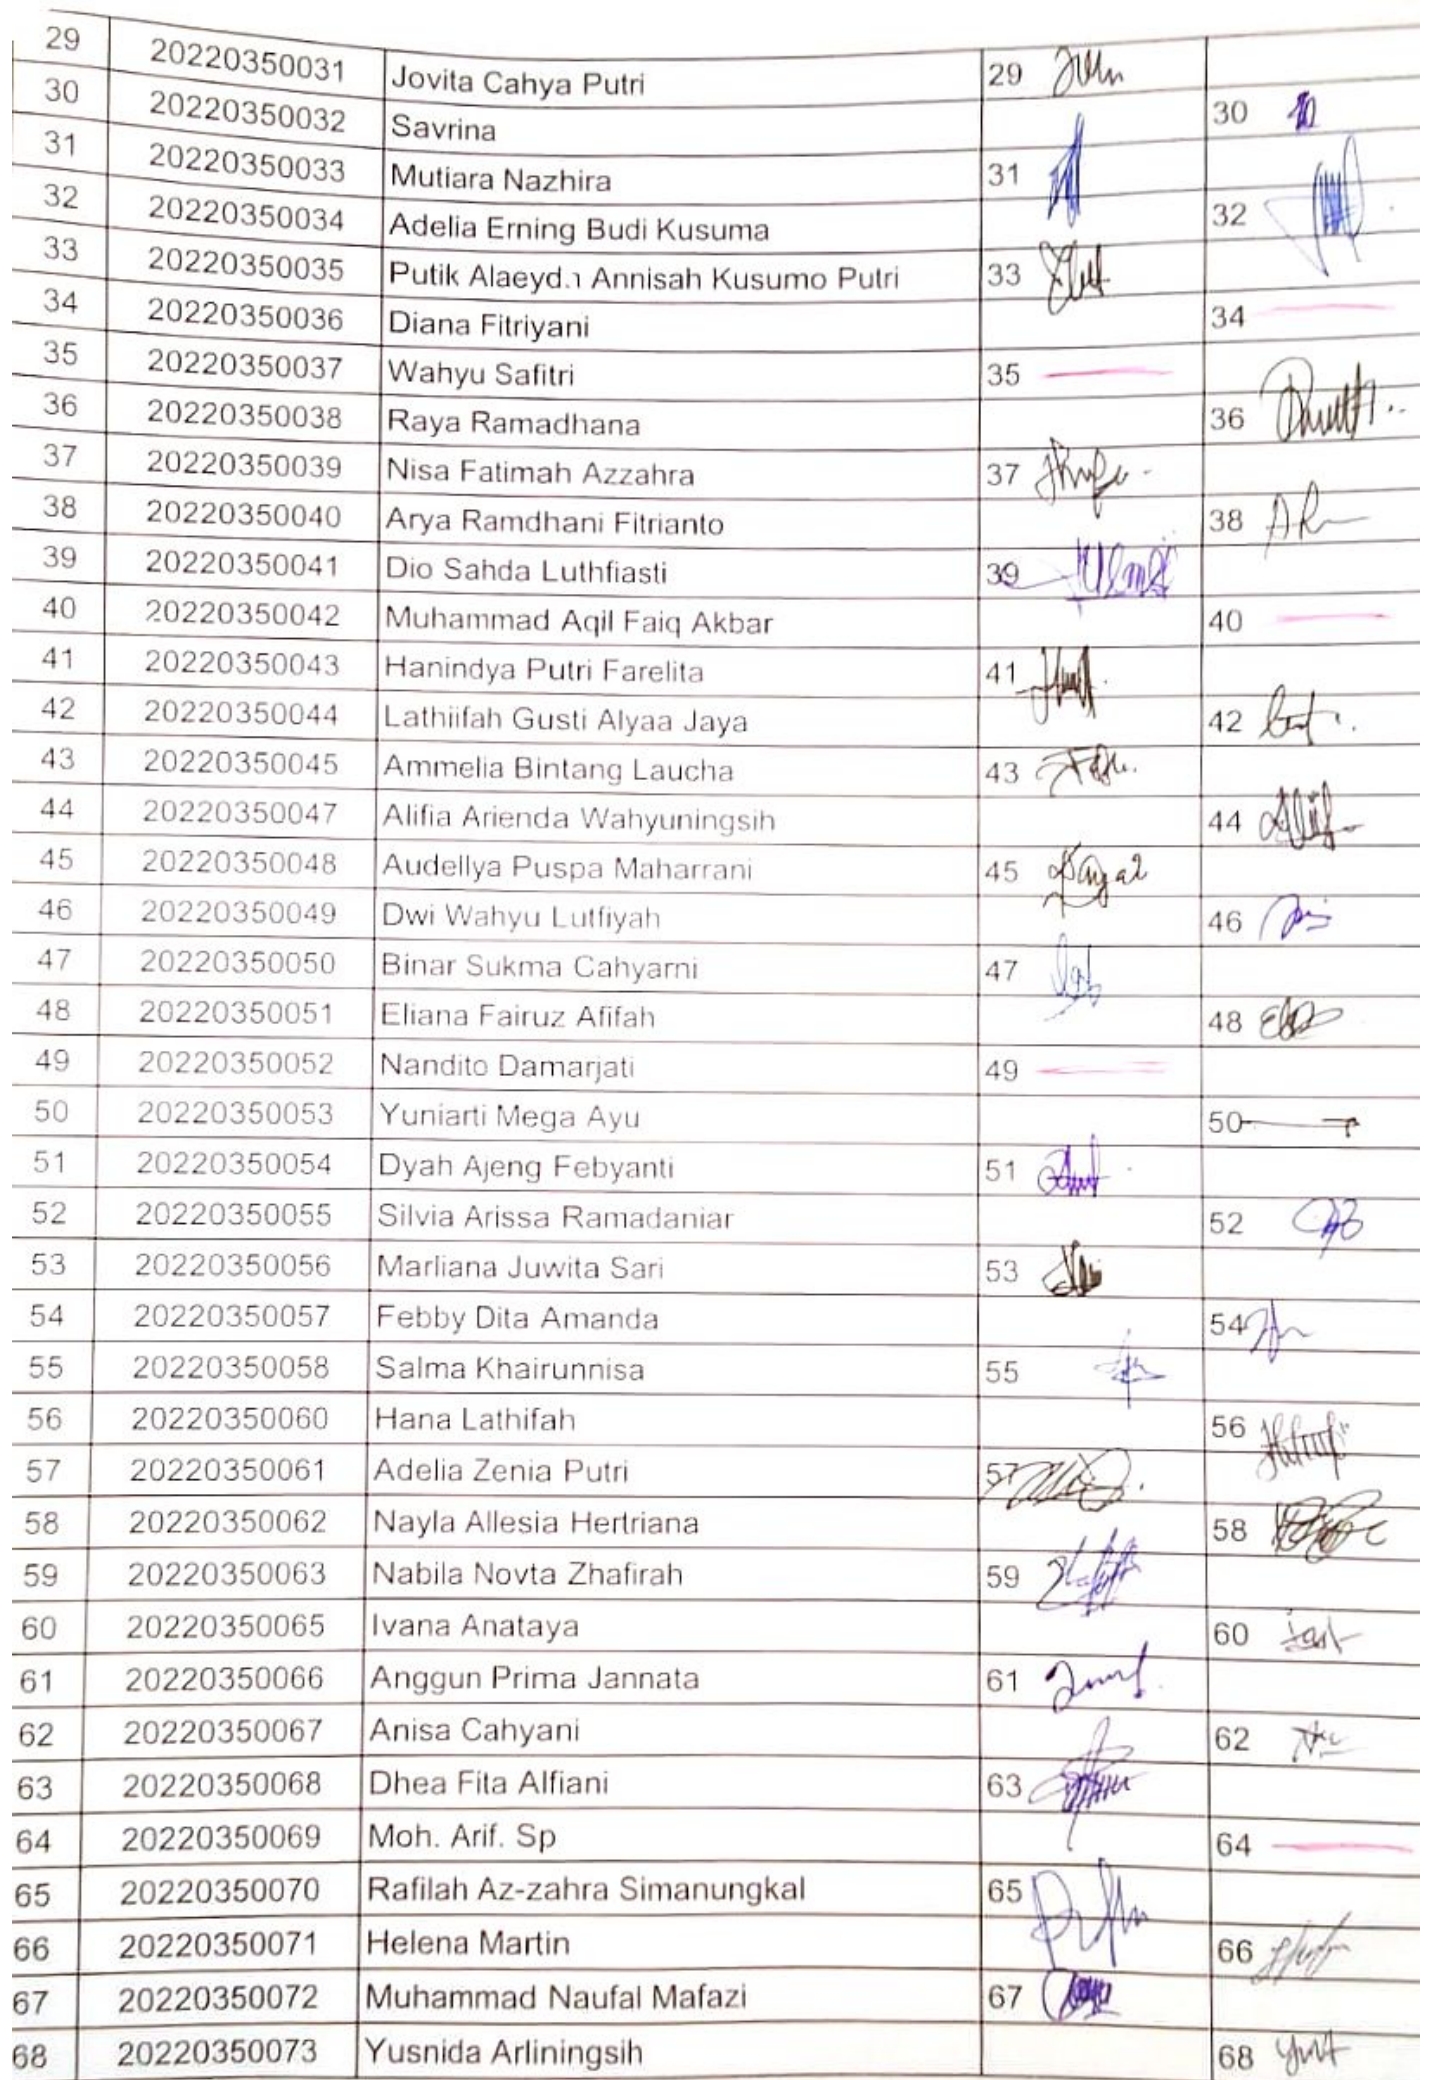 29 20220350031 Jovita Cahya Putri 29
30 20220350032 Savrina 30
31 20220350033 Mutiara Nazhira 31
32 20220350034 Adelia Erning Budi Kusuma 32
33 20220350035 Putik Annisah Kusumo Putri 33
34 20220350036 Diana Fitriyani 34
35 20220350037 Wahyu Safitri 35
36 20220350038 Raya Ramadhana 36
37 20220350039 Nisa Fatimah Azzahra 37
38 20220350040 Arya Ramdhani Fitrianto 38
39 20220350041 Dio Sahda Luthfiasti 39
40 20220350042 Muhammad Aqil Faiq Akbar 40
41 20220350043 Hanindya Putri Farelita 41
42 20220350044 Lathiifah Gusti Alyaa Jaya 42
43 20220350045 Ammelia Bintang Laucha 43
44 20220350047 Alifia Arienda Wahyuningsih 44
45 20220350048 Audellya Puspa Maharrani 45
46 20220350049 Dwi Wahyu Lutfiyah 46
47 20220350050 Binar Sukma Cahyarni 47
48 20220350051 Eliana Fairuz Afifah 48
49 20220350052 Nandito Damarjati 49
50 20220350053 Yuniarti Mega Ayu 50
51 20220350054 Dyah Ajeng Febyanti 51
52 20220350055 Silvia Arissa Ramadaniar 52
53 20220350056 Marliana Juwita Sari 53
54 20220350057 Febby Dita Amanda 54
55 20220350058 Salma Khairunnisa 55
56 20220350060 Hana Lathifah 56
57 20220350061 Adelia Zenia Putri 57
58 20220350062 Nayla Allesia Hertriana 58
59 20220350063 Nabila Novta Zhafirah 59
60 20220350065 Ivana Anataya 60
61 20220350066 Anggun Prima Jannata 61
62 20220350067 Anisa Cahyani 62
63 20220350068 Dhea Fita Alfiani 63
64 20220350069 Moh. Arif. Sp 64
65 20220350070 Rafilah Az-zahra Simanungkal 65
66 20220350071 Helena Martin 66
67 20220350072 Muhammad Naufal Mafazi 67
68 20220350073 Yusnida Arliningsih 68